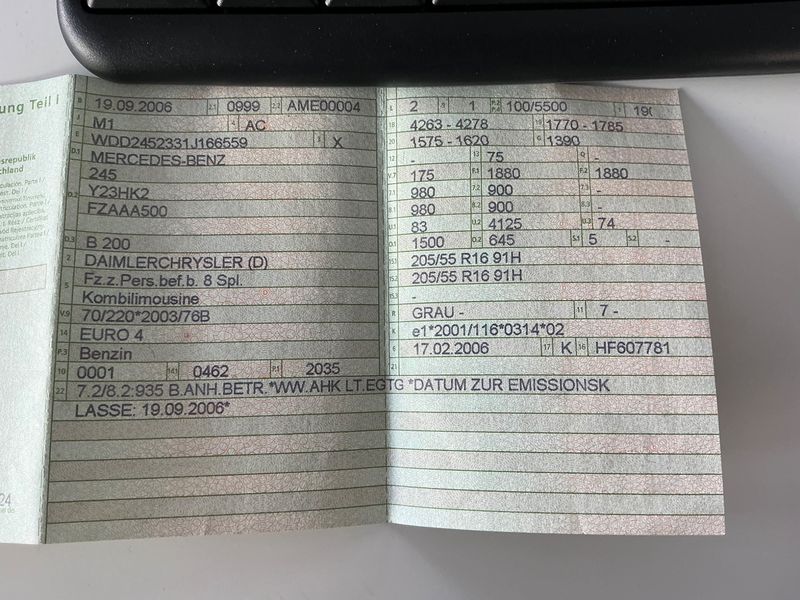 ung Teil I
B 19.09.2006 2.1 0999 2.2 AME00004
J M1 4 AC
E WDD2452331J166559 3 X
D.1 MERCEDES-BENZ
245
D.2 Y23HK2
FZAAA500
D.3 B 200
2 DAIMLERCHRYSLER (D)
5 Fz.z.Pers.bef.b. 8 Spl.
Kombilimousine
V.9 70/220*2003/76B
14 EURO 4
P.3 Benzin
10 0001 14.1 0462 P.1 2035
22 7.2/8.2:935 B.ANH.BETR.*WW.AHK LT.EGTG *DATUM ZUR EMISSIONSK
LASSE: 19.09.2006*
L 2 9 1 P.2 P.4 100/5500 T 190
18 4263 - 4278 19 1770 - 1785
20 1575 - 1620 G 1390
12 - 13 75 Q -
V.7 175 F.1 1880 F.2 1880
7.1 980 7.2 900 7.3 -
8.1 980 8.2 900 8.3 -
U.1 83 U.2 4125 U.3 74
O.1 1500 O.2 645 S.1 5 S.2 -
15.1 205/55 R16 91H
15.2 205/55 R16 91H
15.3 -
R GRAU - 11 7 -
K e1*2001/116*0314*02
6 17.02.2006 17 K 16 HF607781
21
esrepublik
chland
24